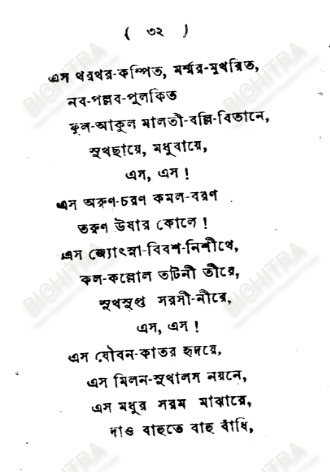 ( ৩২ )
এস থরথর-কম্পিত, মর্ম্মর-মুখরিত,
নব-পল্লব-পুলকিত
ফুল-আকুল মালতী-বল্লি-বিতানে,
সুখছায়ে, মধুবায়ে,
এস, এস !
এস অরুণ-চরণ কমল-বরণ
তরুণ উষার কোলে !
এস জ্যোৎস্না-বিবশ-নিশীথে,
কল-কল্লোল তটিনী তীরে,
সুখসুপ্ত সরসী-নীরে,
এস, এস !
এস যৌবন-কাতর হৃদয়ে,
এস মিলন-সুখালস নয়নে,
এস মধুর সরম মাঝারে,
দাও বাহুতে বাহু বাঁধি,
BICHITRA